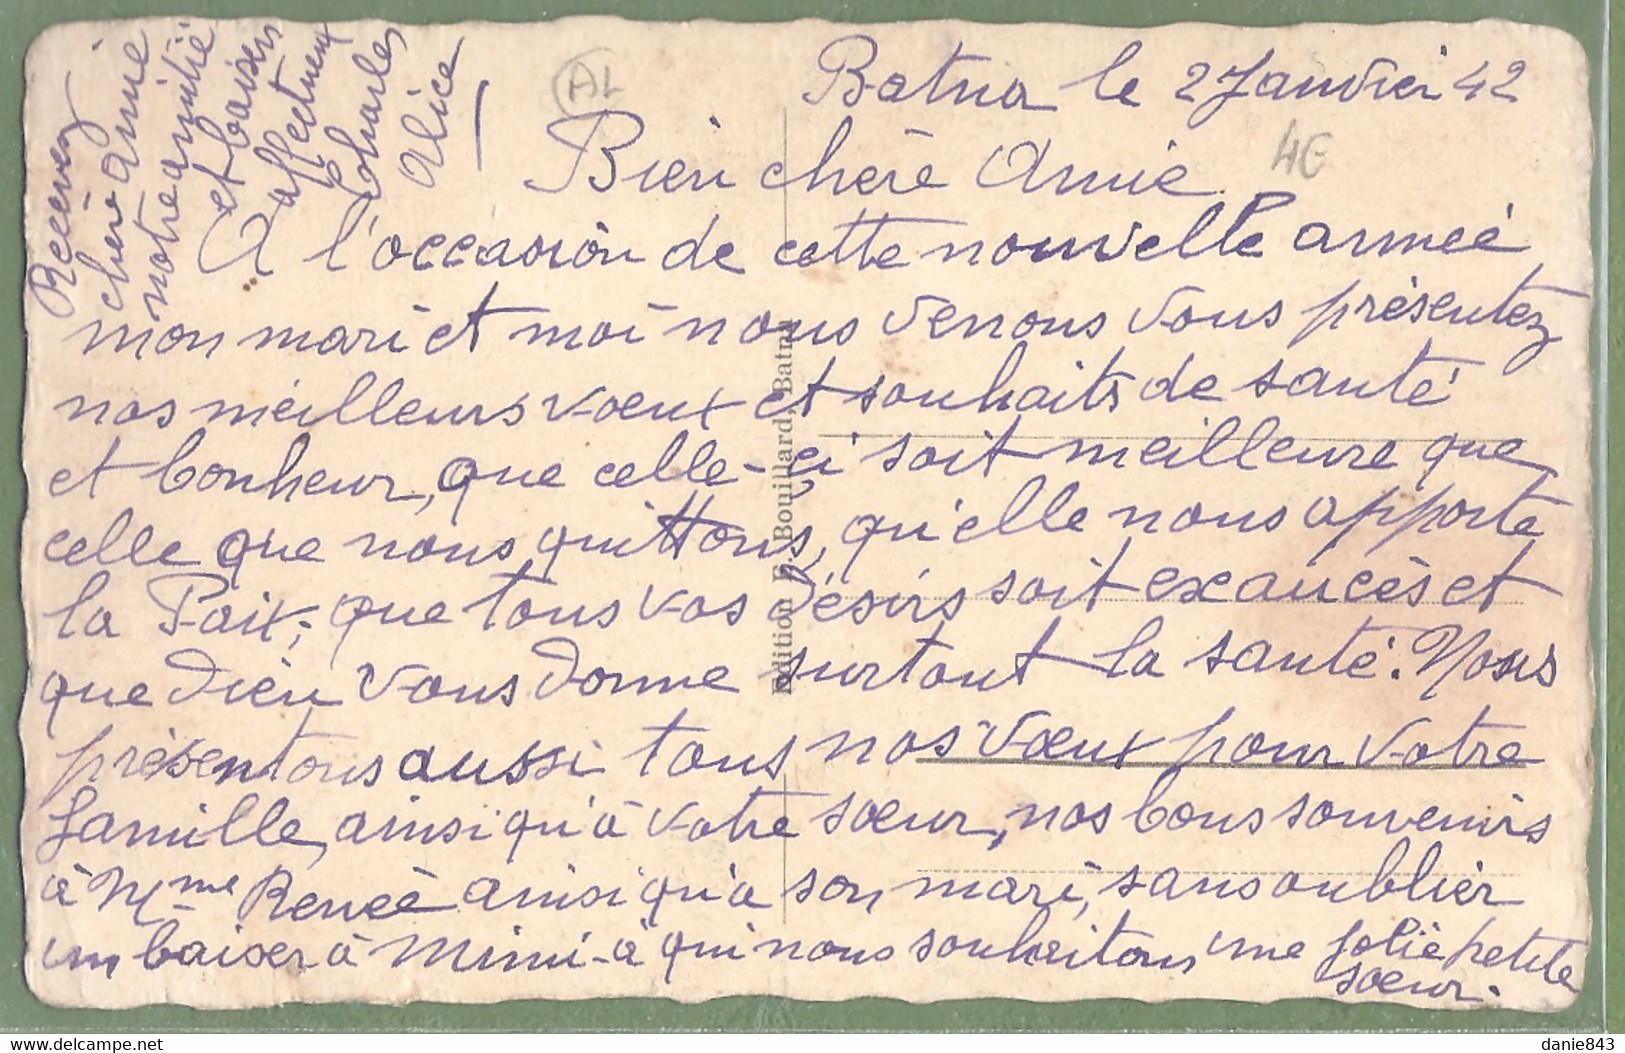 Batna le 2 Janvier 42
Bien chère Amie
A l'occasion de cette nouvelle année
mon mari et moi nous venons vous présentez
nos meilleurs vœux et souhaits de santé
et bonheur, que celle-ci soit meilleure que
celle que nous quittons, qu'elle nous apporte
la Paix; que tous vos désirs soit exaucés et
que dieu vous donne surtout la santé. Nous
présentons aussi tous nos vœux pour votre
famille, ainsi qu'à votre sœur, nos bons souvenirs
à Mme Renée ainsi qu'a son mari, sans oublier
un baiser à Mimi - à qui nous souhaitons une jolie petite
sœur.
Recevez
chère amie
notre amitié
et baisers
affectueux
Charles
Alice
AL
4€
Edition E. Bouillard, Batna
www.delcampe.net
danie843